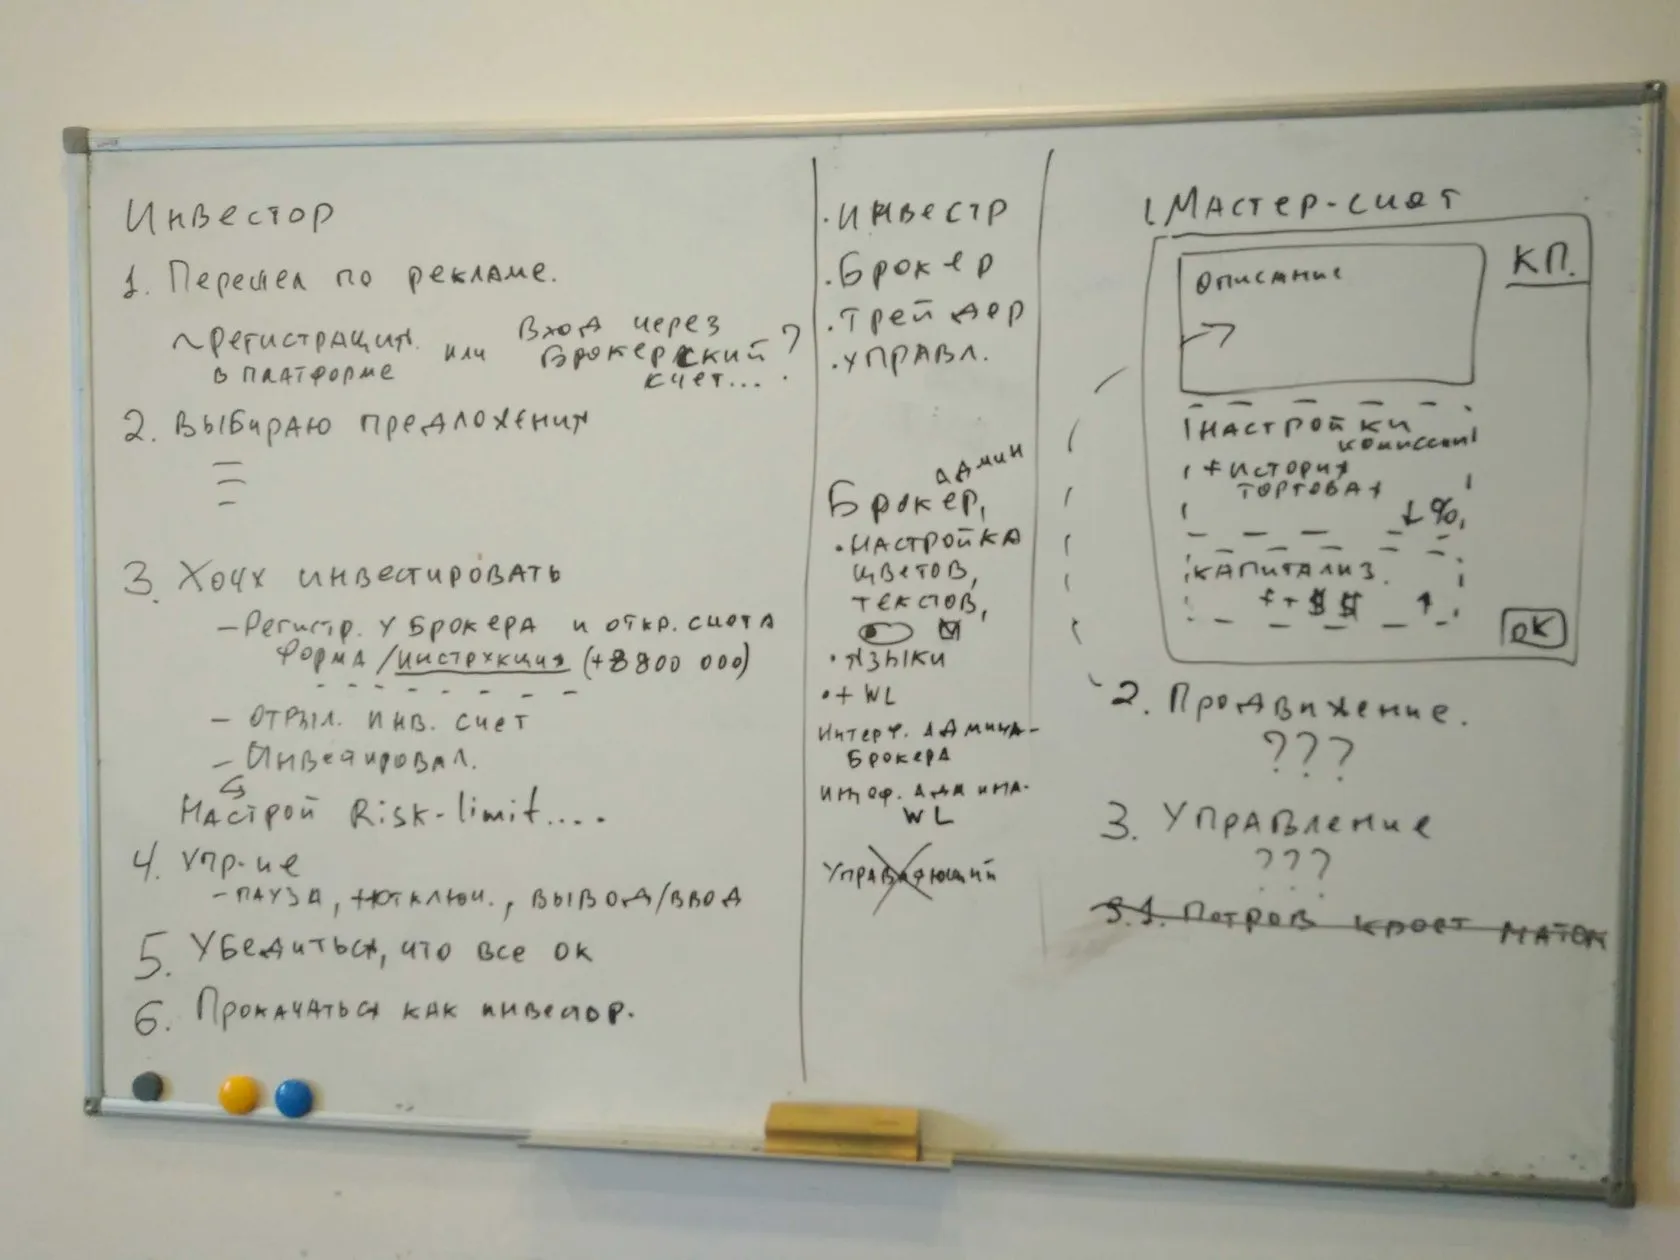 Инвестор
1. Перешел по рекламе.
~Регистрация в платформе или Вход через Брокерский счет... ?
2. Выбираю предложения
3. Хочу инвестировать
- Регистр. у брокера и откр. счета
форма/инструкция (+8800 000)
- инв. счет
- Инвестировал.
Настрой Risk-limit....
4. Упр-ие
- пауза, отключ., вывод/ввод
5. Убедиться, что все ок
6. Прокачаться как инвестор.
. инвестр
. Брокер
. Трейдер
. управл.
админ
Брокер,
• настройка
цветов,
текстов,
• языки
• + WL
Интерф. Админа-
Брокера
админа-
WL
Управляющий
1. Мастер-счет
КП.
описание
Настройки
комиссии
+ история
торговая
↓ %
капитализ.
++ $ $ ↑
OK
2. Продвижение.
???
3. Управление
???
3.1. Петров кроет маток